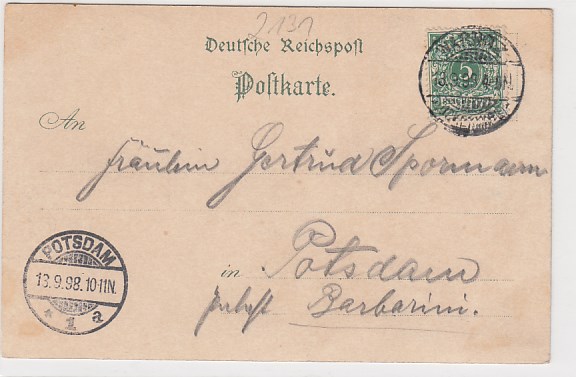 2131
Deutsche Reichspost
Postkarte.
5
13.9.98
An
Fräulein Gertrud Spormann
POTSDAM
13.9.98.10-11N.
* 1 a
in Potsdam
Palast Barbarini.